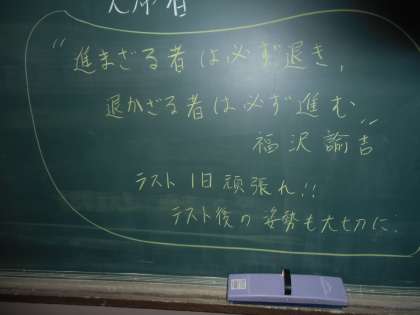 "進まざる者は必ず退き、
退かざる者は必ず進む"
福沢諭吉
テスト1日頑張れ!!
テスト後の姿勢も大切に